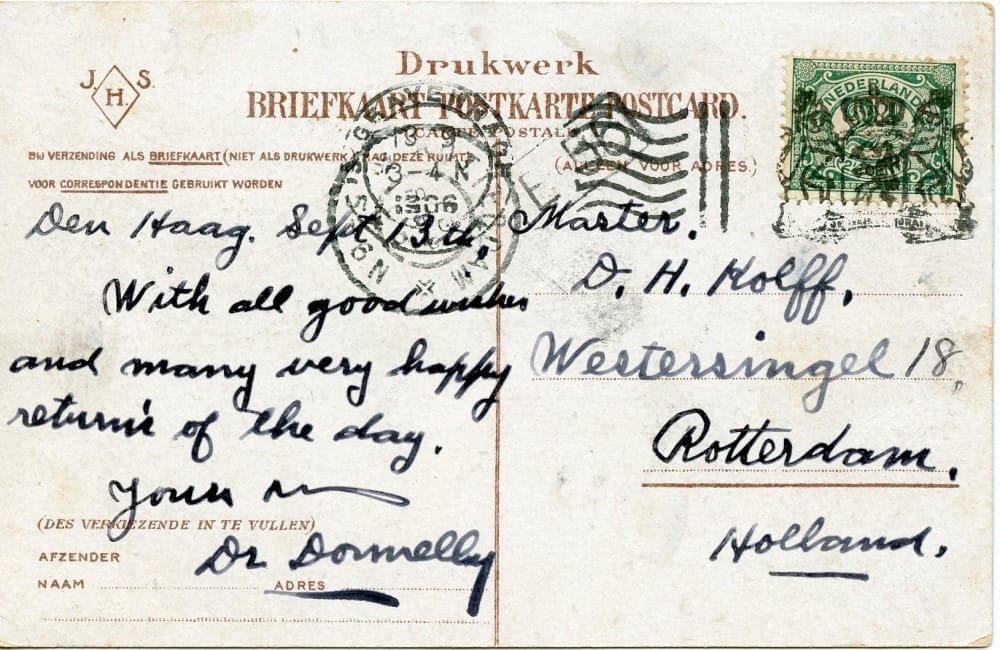 J. H. S
Drukwerk
BRIEFKAART POSTKARTE POSTCARD.
(CARTE POSTALE)
BIJ VERZENDING ALS BRIEFKAART (NIET ALS DRUKWERK) MAG DEZE RUIMTE
VOOR CORRESPONDENTIE GEBRUIKT WORDEN
(ALLEEN VOOR ADRES.)
NEDERLAND
3-4 N
Den Haag. Sept 13th.
With all good wishes
and many very happy
return's of the day.
Yours
Dr Donnelly
(DES VERKIEZENDE IN TE VULLEN)
AFZENDER
NAAM ADRES
Master.
D. H. Kolff.
Westersingel 18,
Rotterdam.
Holland.